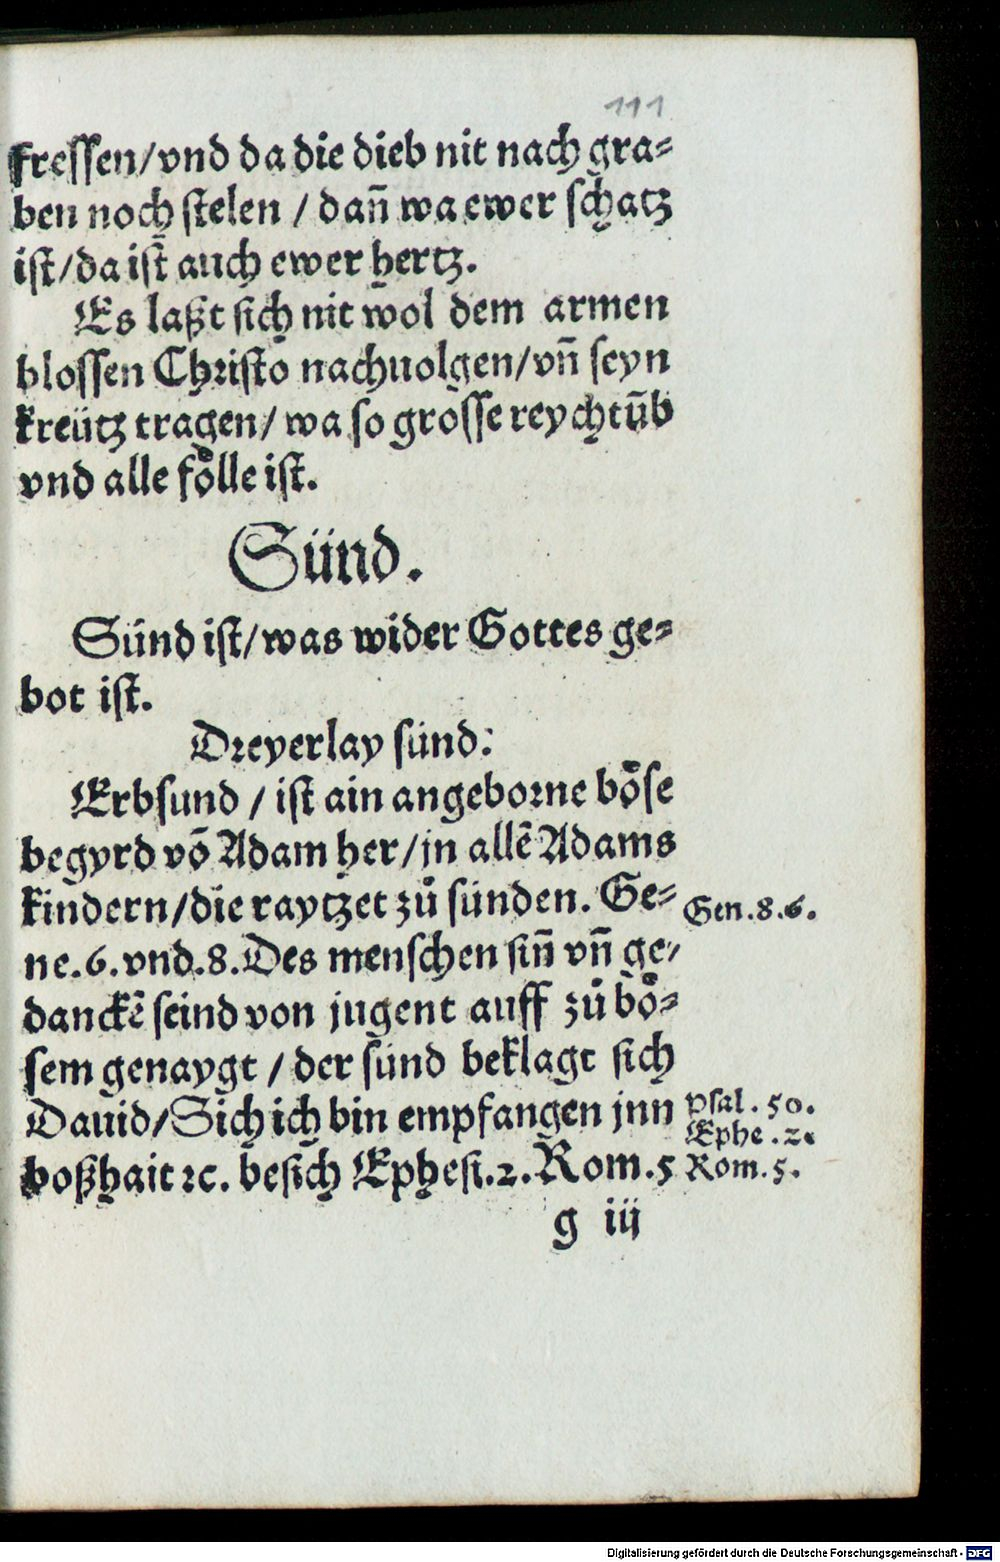 111
fressen/vnd da die dieb nit nach gra⸗
ben noch stelen / dañ wa ewer schatz
ist/da ist auch ewer hertz.
Es laßt sich nit wol dem armen
blossen Christo nachuolgen/vñ seyn
kreütz tragen/ wa so grosse reychtũb
vnd alle foͤlle ist.
Sünd.
Sünd ist/was wider Gottes ge⸗
bot ist.
Dreyerlay sünd:
Erbsund / ist ain angeborne boͤse
begyrd võ Adam her/jn allẽ Adams
kindern/die raytzet zuͦ sünden. Ge⸗
Gen.8.6.
ne.6.vnd.8.Des menschen siñ vñ ge/
danckẽ seind von jugent auff zuͦ boͤ⸗
sem genaygt / der sünd beklagt sich
Dauid/Sich ich bin empfangen jnn
psal.50.
Ephe.2.
boßhait ꝛc. besich Ephesi.2.Rom.5
Rom.5.
g iij
Digitalisierung gefördert durch die Deutsche Forschungsgemeinschaft - DFG